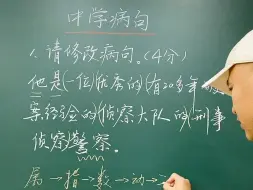 中学病句
1.请修改病句。(4分)
他是(一位)(优秀的)(有20多年
案经验的)(侦察大队的)(刑事
侦察)警察。
属→指→数→动→